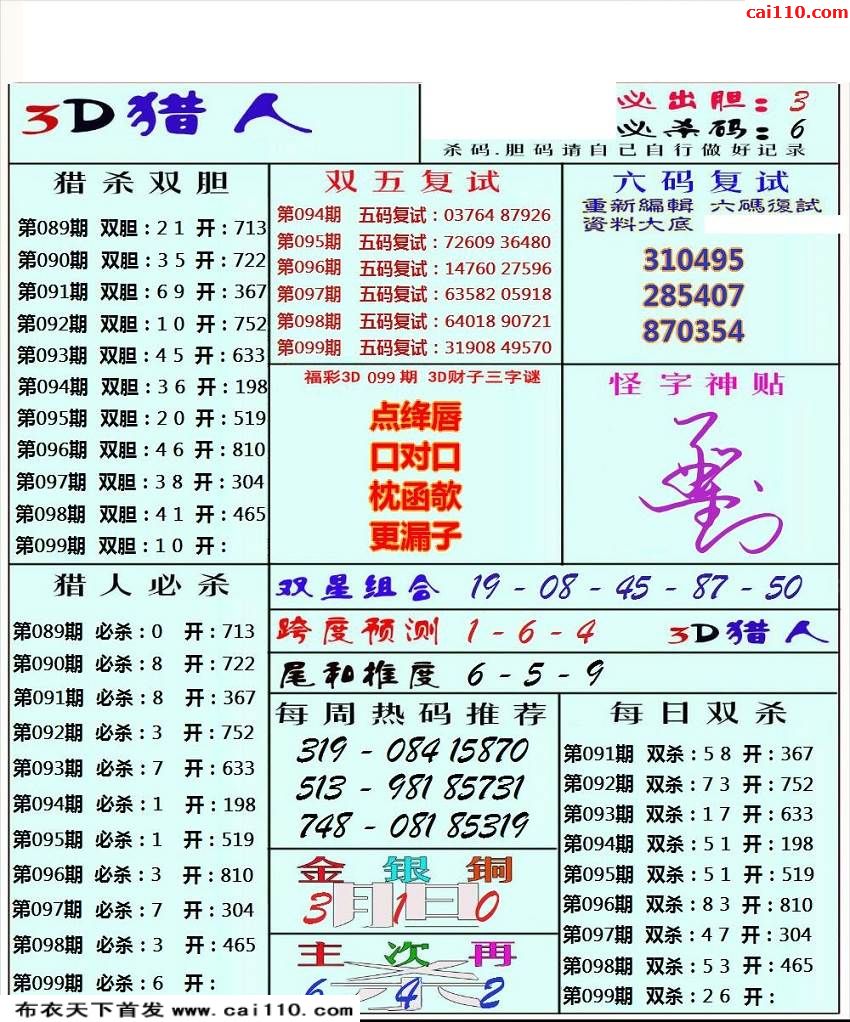 cai110.com
3D猎人
必出胆：3
必杀码：6
杀码.胆码请自己自行做好记录
猎杀双胆
第089期 双胆：21 开：713
第090期 双胆：35 开：722
第091期 双胆：69 开：367
第092期 双胆：10 开：752
第093期 双胆：45 开：633
第094期 双胆：36 开：198
第095期 双胆：20 开：519
第096期 双胆：46 开：810
第097期 双胆：38 开：304
第098期 双胆：41 开：465
第099期 双胆：10 开：
双五复试
第094期 五码复试：03764 87926
第095期 五码复试：72609 36480
第096期 五码复试：14760 27596
第097期 五码复试：63582 05918
第098期 五码复试：64018 90721
第099期 五码复试：31908 49570
六码复试
重新編輯 六碼復試
資料大底
310495
285407
870354
福彩3D 099期 3D财子三字谜
点绛唇
口对口
枕函欹
更漏子
怪字神贴
猎人必杀
第089期 必杀：0 开：713
第090期 必杀：8 开：722
第091期 必杀：8 开：367
第092期 必杀：3 开：752
第093期 必杀：7 开：633
第094期 必杀：1 开：198
第095期 必杀：1 开：519
第096期 必杀：3 开：810
第097期 必杀：7 开：304
第098期 必杀：3 开：465
第099期 必杀：6 开：
双星组合 19-08-45-87-50
跨度预测 1-6-4 3D猎人
尾和推度 6-5-9
每周热码推荐
319-084 15870
513-981 85731
748-081 85319
金银铜
3 1 0
主次再
6 4 2
每日双杀
第091期 双杀：58 开：367
第092期 双杀：73 开：752
第093期 双杀：17 开：633
第094期 双杀：51 开：198
第095期 双杀：51 开：519
第096期 双杀：83 开：810
第097期 双杀：47 开：304
第098期 双杀：53 开：465
第099期 双杀：26 开：
布衣天下首发 www.cai110.com